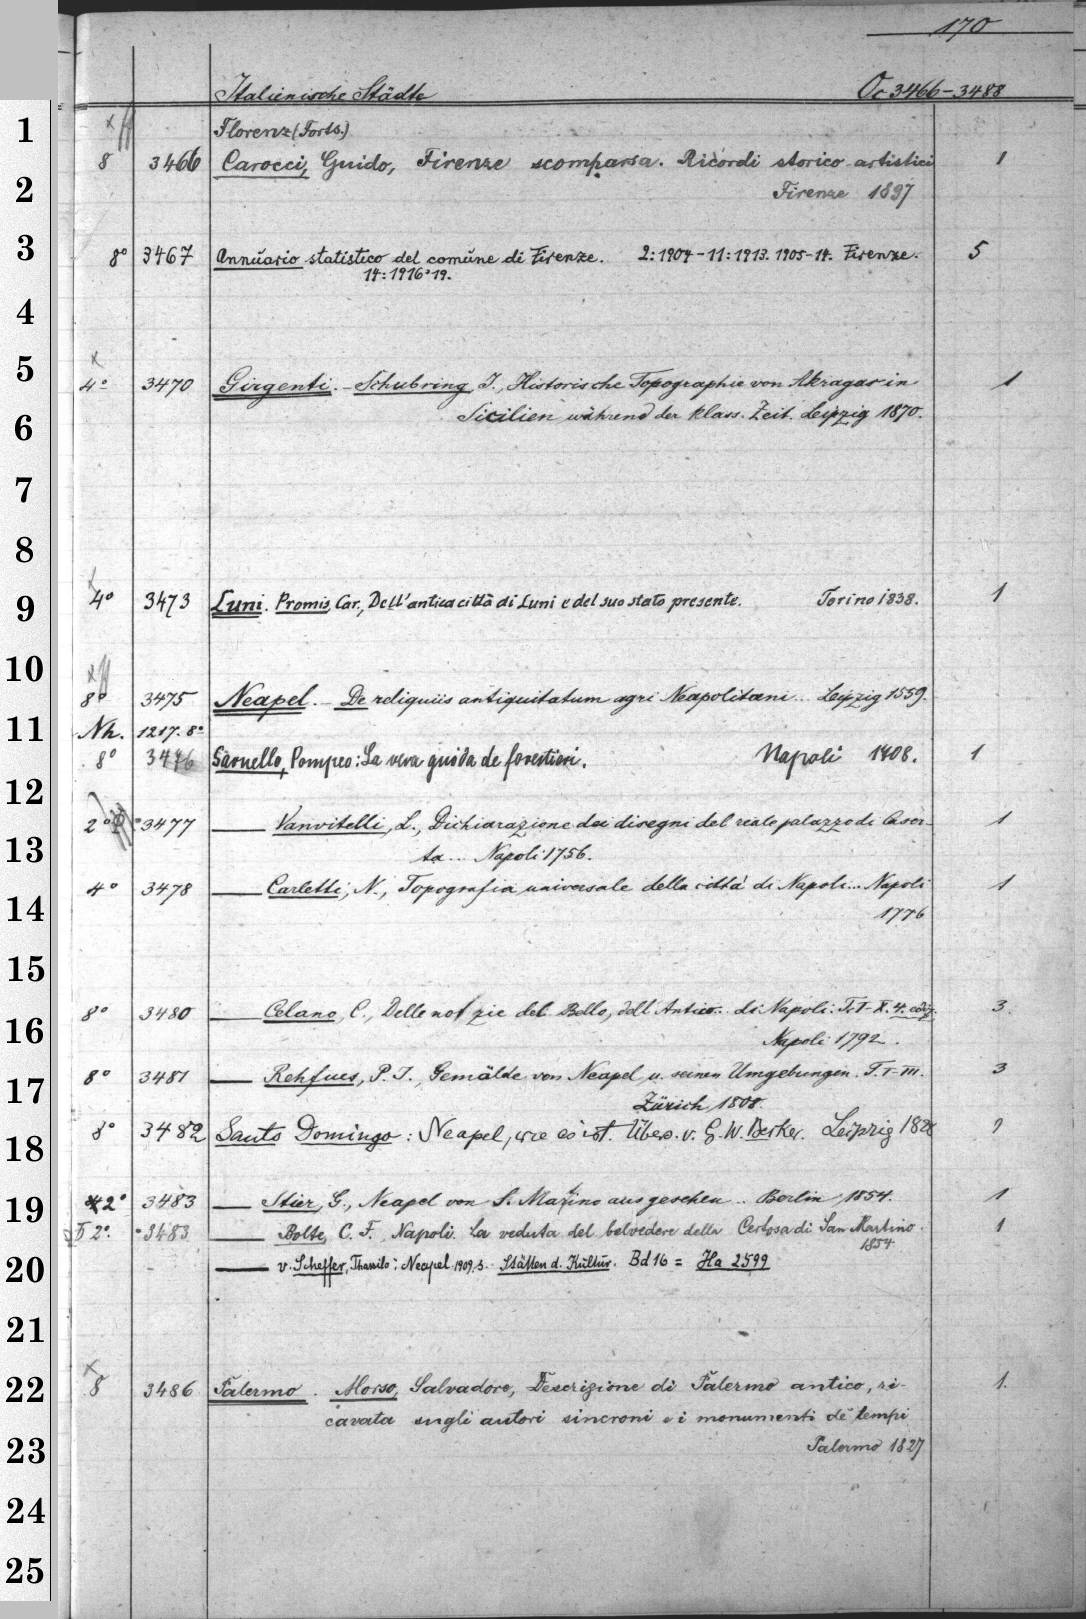 170
Italienische Städte Oc 3466-3488
1
Florenz (Forts.)
8 3466 Carocci, Guido, Firenze scomparsa. Ricordi storico artistici 1
2
Firenze 1897
3
8° 3467 Annuario statistico del comune di Firenze. 2:1904-11:1913. 1905-14. Firenze. 5
14:1916-19.
4
5
4° 3470 Girgenti. - Schubring J., Historische Topographie von Akragas in 1
Sicilien während der klass. Zeit. Leipzig 1870.
6
7
8
4° 3473 Luni. Promis, Car., Dell'antica città di Luni e del suo stato presente. Torino 1838. 1
9
10
8° 3475 Neapel. - De reliquiis antiquitatum agri Neapolitani... Leipzig 1559.
11
Nh. 1217. 8°
8° 3476 Sarnello, Pompeo: La vera guida de forestieri. Napoli 1708. 1
12
2° 3477 — Vanvitelli, L., Dichiarazione dei disegni del reale palazzo di Caser- 1
13
ta... Napoli 1756.
4° 3478 — Carletti, N., Topografia universale della città di Napoli... Napoli 1
14
1776
15
8° 3480 — Celano, C., Delle notizie del Bello, dell'Antico... di Napoli. T. I-X. 4. ediz. 3.
16
Napoli 1792.
8° 3481 — Rehfues, P. J., Gemälde von Neapel u. seinen Umgebungen. T. I-III. 3
17
Zürich 1808.
8° 3482 Santo Domingo: Neapel, wie es ist. Übers. v. G. W. Becker. Leipzig 1828
18
2° 3483 — Stier, G., Neapel von S. Martino aus gesehen .. Berlin 1854. 1
19
2°. 3483 — Bolte, C. F., Napoli. La veduta del belvedere della Certosa di San Martino. 1
1854
20
— v. Scheffer, Thassilo: Neapel. 1909. s. Stätten d. Kultur. Bd 16 = Ha 2599
21
8 3486 Palermo. Morso, Salvadore, Descrizione di Palermo antico, ri- 1.
22
cavata sugli autori sincroni e i monumenti de' tempi
23
Palermo 1827
24
25